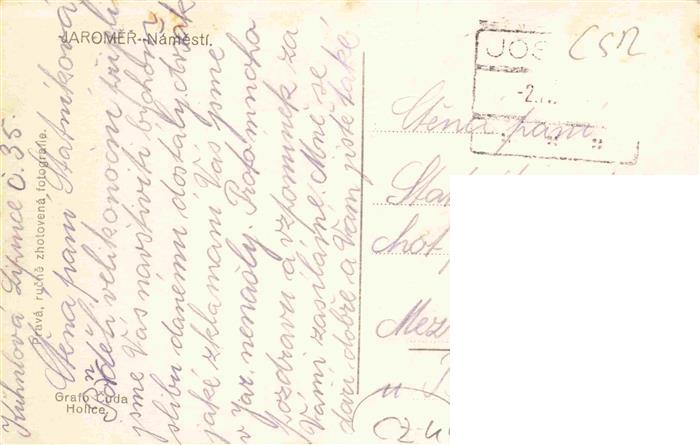 JAROMĚŘ-Náměstí.
Pravá, ručně zhotovená fotografie.
Grafo Čuda
Holice.
Kühnlová Lipnice č. 35.
Ctěná paní Statníková
neděli velikonoční přišli
jsme Vás navštíviti bychom
slibu danému dostály, avšak
jaké zklamaní Vás jsme
v Jar. nenašly. Proto mnoho
pozdravů a vzpomínek za
Vámi zasíláme. Mně se
daří dobře a Vám jistě také
JOS
ČSR
-2.
Ctěná paní
Sta
choť
Mez
u J